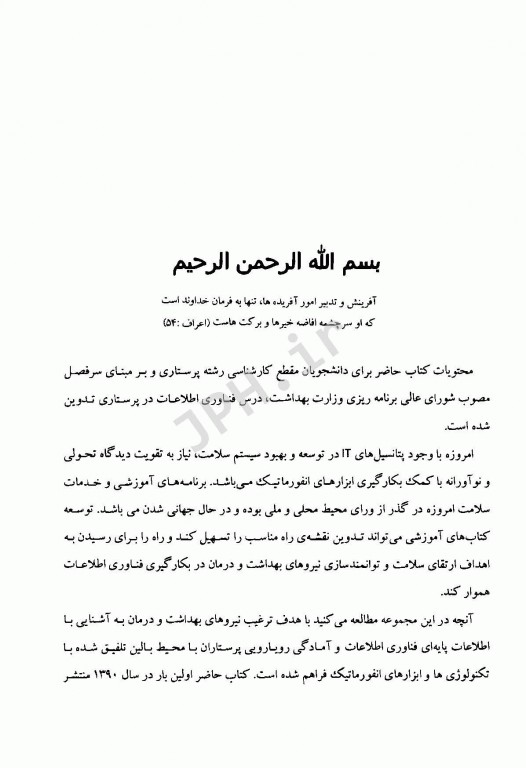 بسم الله الرحمن الرحیم
آفرینش و تدبیر امور آفریده ها، تنها به فرمان خداوند است
که او سرچشمه افاضه خیرها و برکت هاست (اعراف :۵۴)
محتویات کتاب حاضر برای دانشجویان مقطع کارشناسی رشته پرستاری و بر مبنای سرفصل
مصوب شورای عالی برنامه ریزی وزارت بهداشت، درس فناوری اطلاعات در پرستاری تدوین
شده است.
امروزه با وجود پتانسیل‌های IT در توسعه و بهبود سیستم سلامت، نیاز به تقویت دیدگاه تحولی
و نوآورانه با کمک بکارگیری ابزارهای انفورماتیک می‌باشد. برنامه‌های آموزشی و خدمات
سلامت امروزه در گذر از ورای محیط محلی و ملی بوده و در حال جهانی شدن می باشد. توسعه
کتاب‌های آموزشی می‌تواند تدوین نقشه‌ی راه مناسب را تسهیل کند و راه را برای رسیدن به
اهداف ارتقای سلامت و توانمندسازی نیروهای بهداشت و درمان در بکارگیری فناوری اطلاعات
هموار کند.
آنچه در این مجموعه مطالعه می‌کنید با هدف ترغیب نیروهای بهداشت و درمان به آشنایی با
اطلاعات پایه‌ای فناوری اطلاعات و آمادگی رویارویی پرستاران با محیط بالین تلفیق شده با
تکنولوژی ها و ابزارهای انفورماتیک فراهم شده است. کتاب حاضر اولین بار در سال ۱۳۹۰ منتشر
JPH.ir